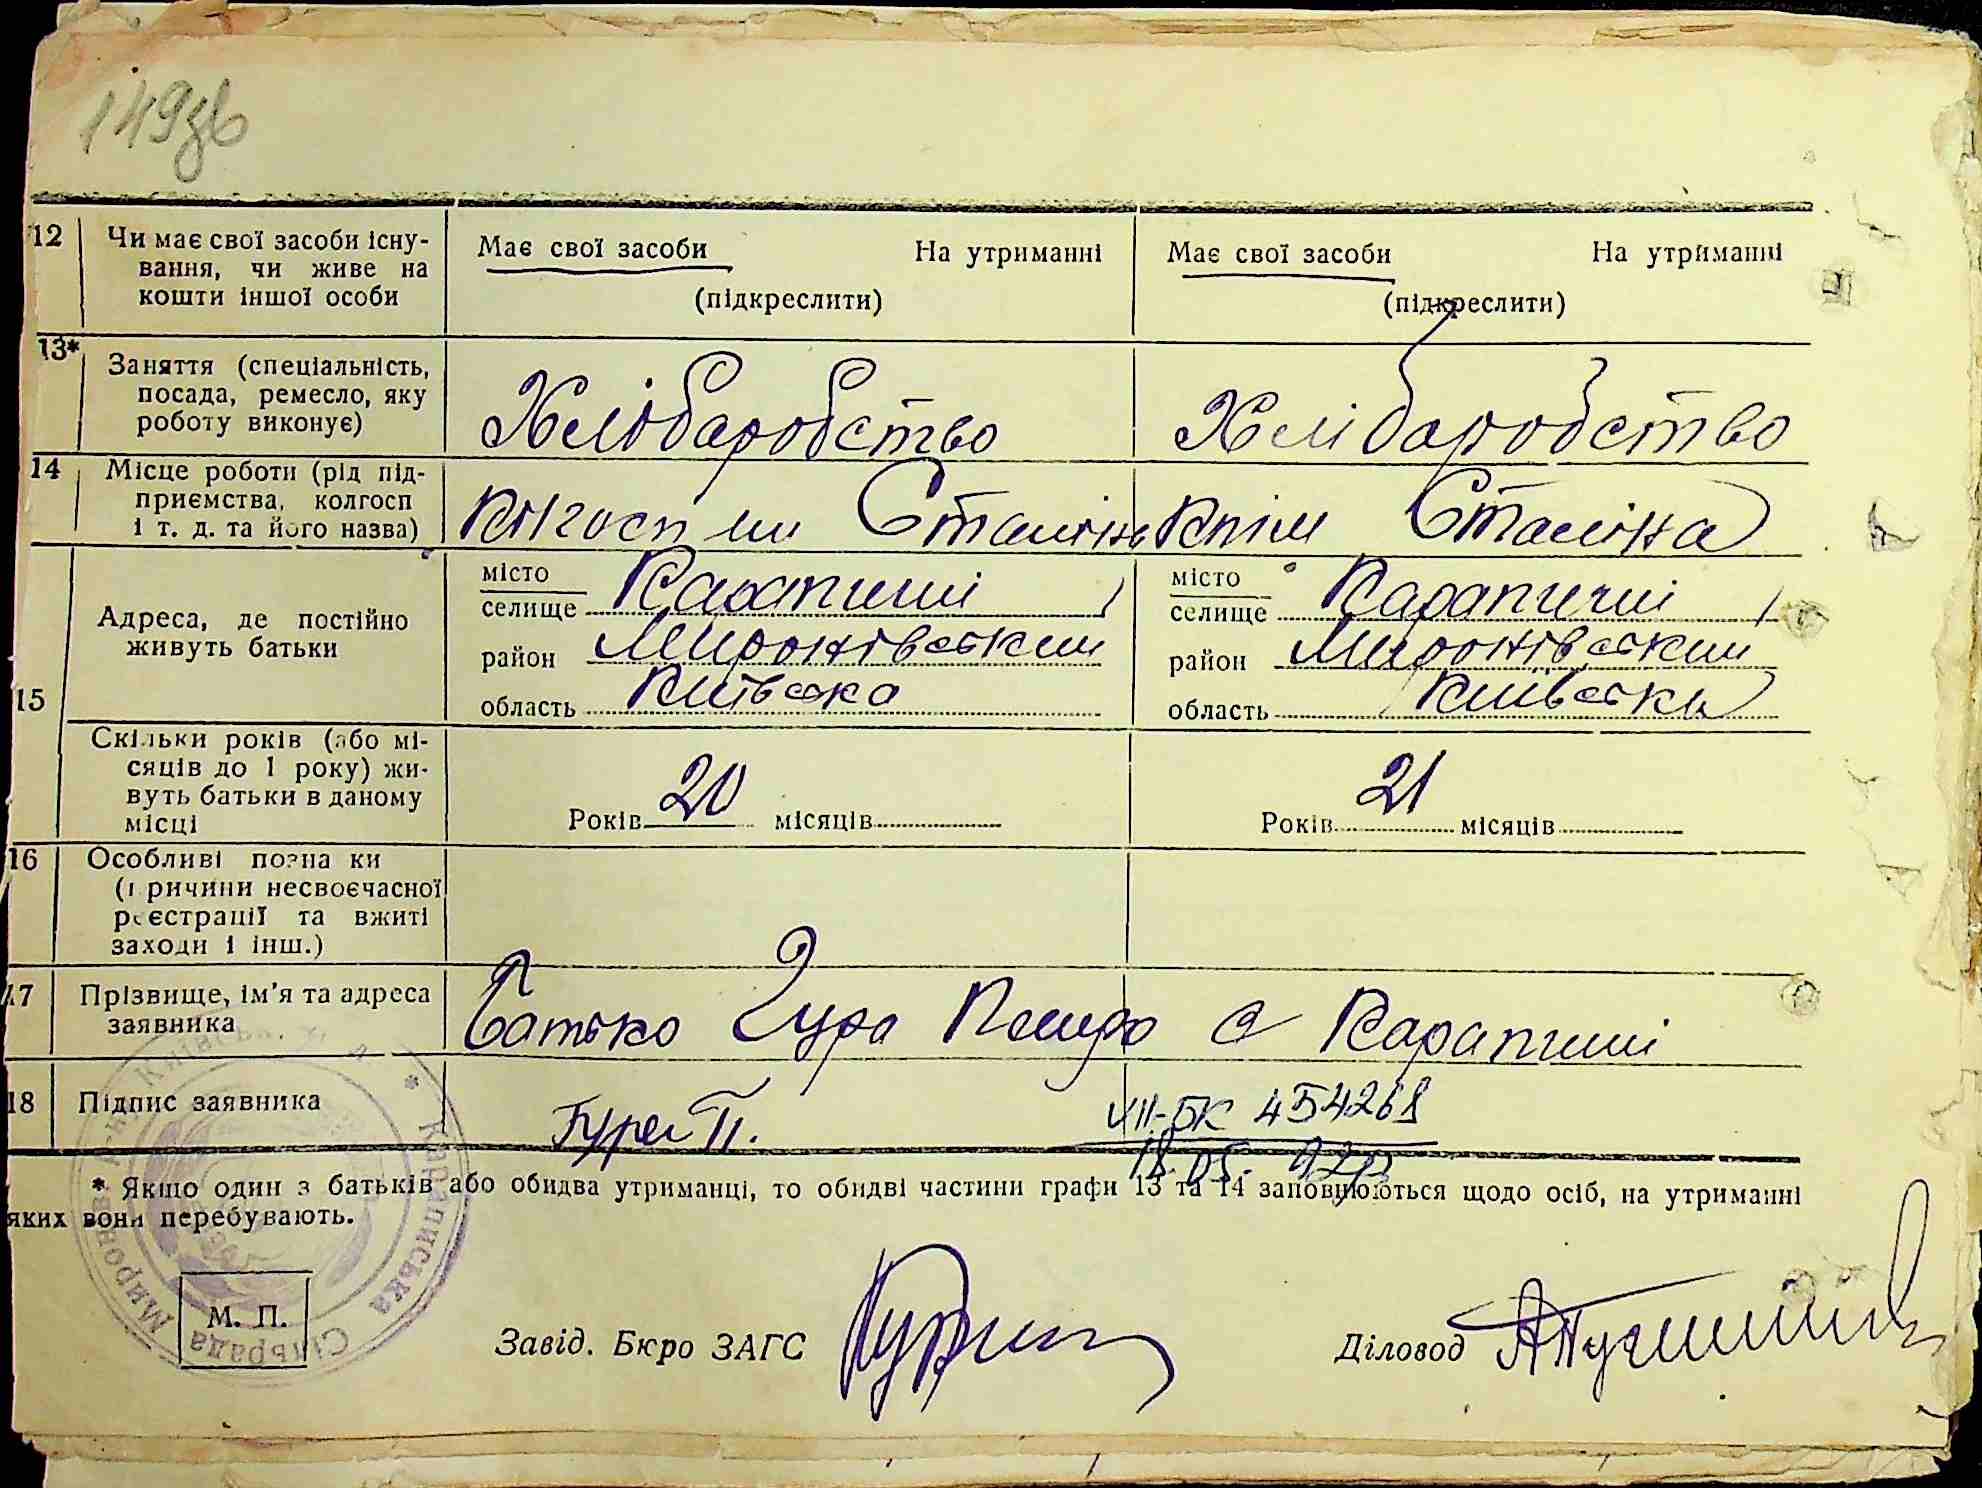 149зв
12 Чи має свої засоби існу-
вання, чи живе на
кошти іншої особи
Має свої засоби На утриманні
(підкреслити)
Має свої засоби На утриманні
(підкреслити)
13* Заняття (спеціальність,
посада, ремесло, яку
роботу виконує)
Хлібаробство
Хлібаробство
14 Місце роботи (рід під-
приємства, колгосп
і т. д. та його назва)
Колгосп им Сталіна
К П ім Сталіна
15 Адреса, де постійно
живуть батьки
місто
селище Карапиши
район Миронівським
область Київска
місто
селище Карапиши
район Миронівським
область Київська
Скільки років (або мі-
сяців до 1 року) жи-
вуть батьки в даному
місці
Років 20 місяців
Років 21 місяців
16 Особливі позначки
(причини несвоєчасної
реєстрації та вжиті
заходи і інш.)
17 Прізвище, ім'я та адреса
заявника
Батько Гура с Карапиши
18 Підпис заявника
Гура П.
VIII-БК 454268
18.05.
* Якщо один з батьків або обидва утриманці, то обидві частини графи 13 та 14 заповнюються щодо осіб, на утриманні
яких вони перебувають.
М. П.
Караписька Сільрада Миронівськ Київська
Завід. Бюро ЗАГС
Діловод